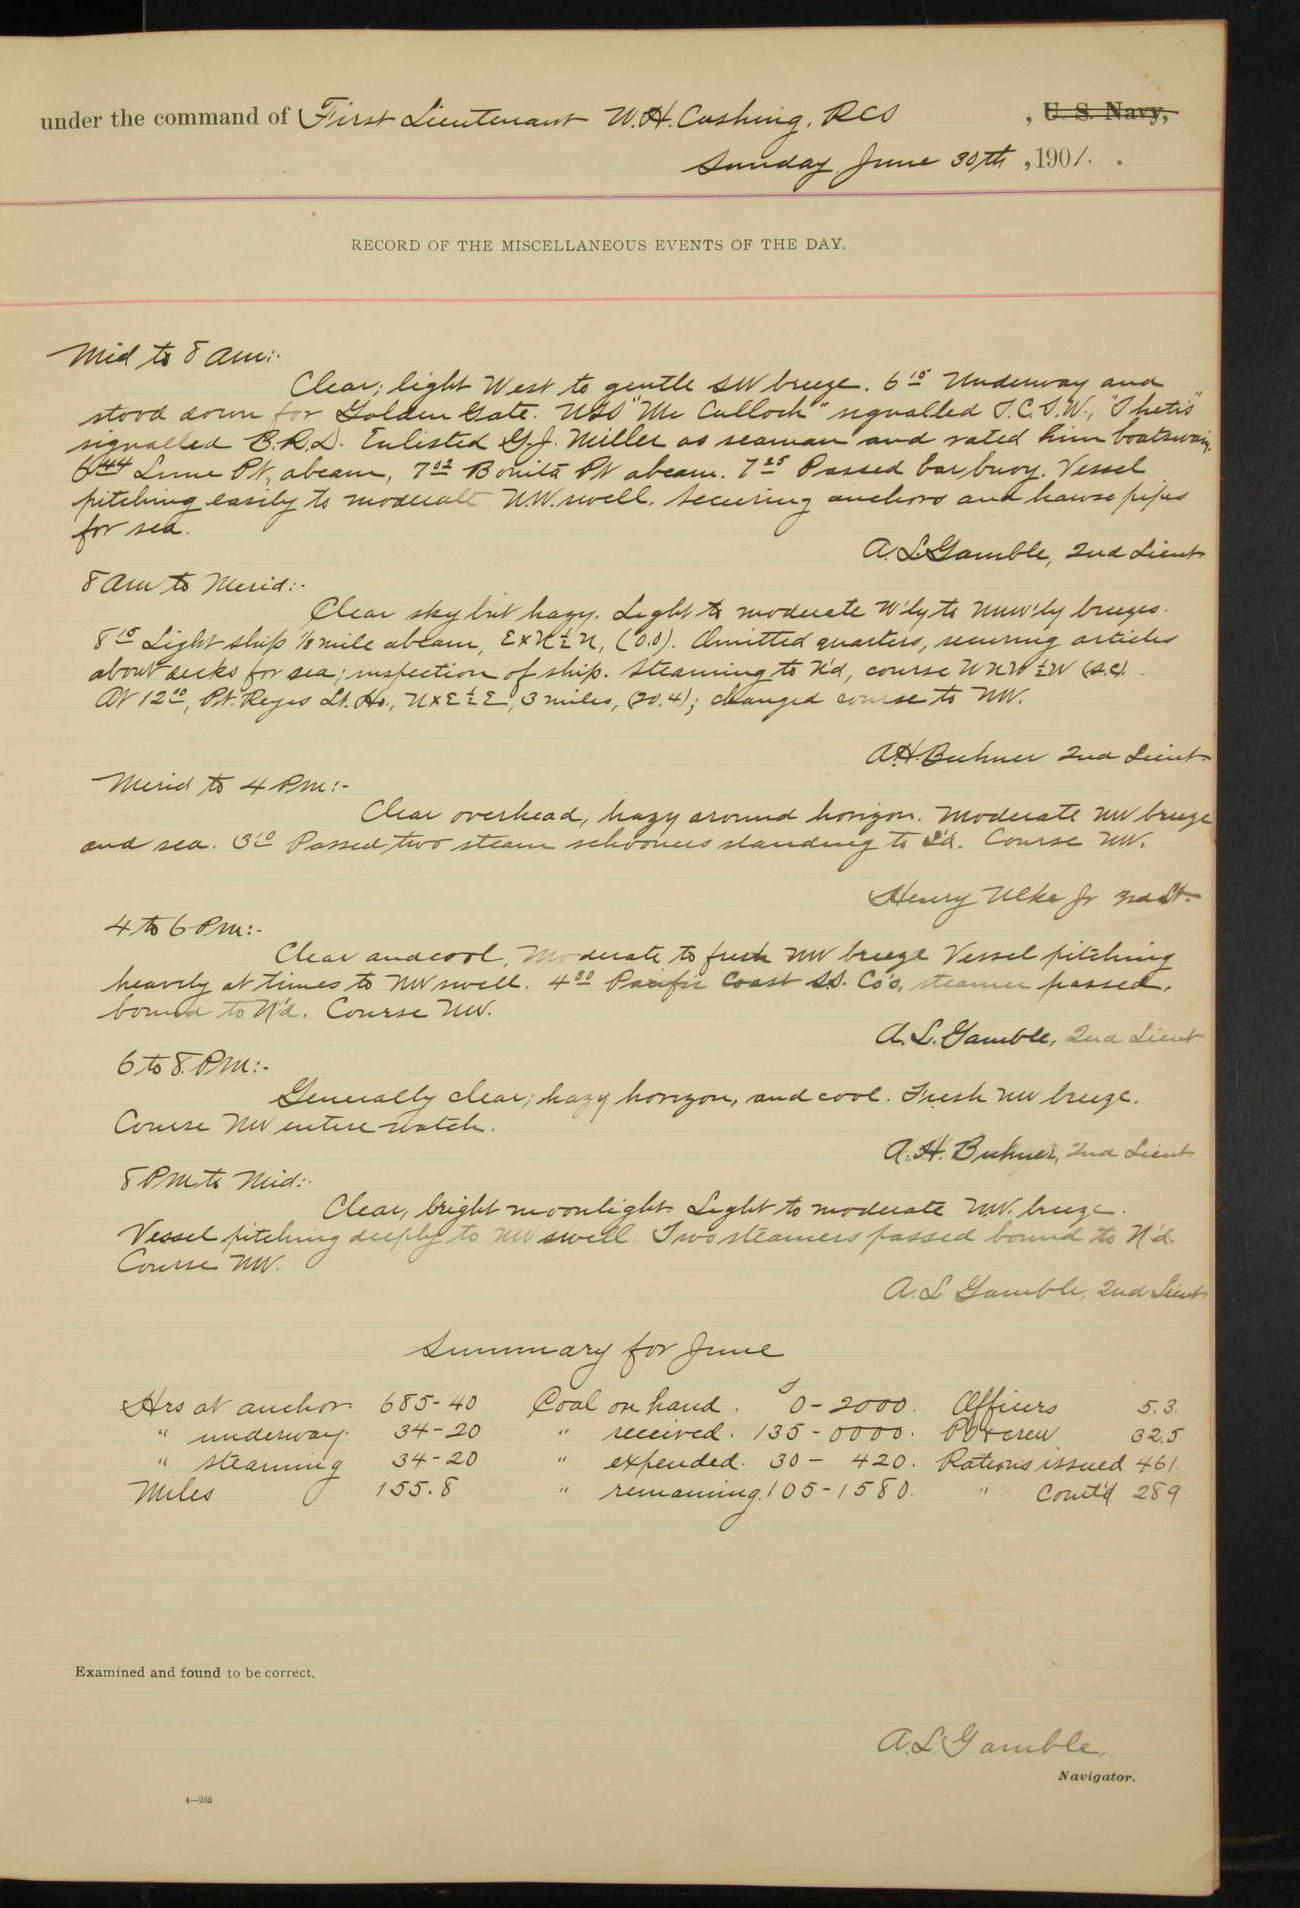 under the command of First Lieutenant W. H. Cushing, RCS , U. S. Navy,
Sunday June 30th , 1901.
RECORD OF THE MISCELLANEOUS EVENTS OF THE DAY.
Mid to 8 am:-
Clear; light West to gentle SW breeze. 6 15 Underway and
stood down for Golden Gate. USS "Mc Culloch" signalled T.C.S.W., "Thetis"
signalled B.R.D. Enlisted G. J. Miller as seaman and rated him boatswain.
6 44 Lime Pt. abeam, 7 02 Bonita Pt abeam. 7 25 Passed bar buoy. Vessel
pitching easily to moderate N.W. swell. Securing anchors and hawse pipes
for sea.
A. L. Gamble, 2nd Lieut
8 am to Merid:-
Clear sky but hazy. Light to moderate W'ly to NNW'ly breezes.
8 15 Light ship 1/8 mile abeam, ExN½N, (0.0). Omitted quarters, securing articles
about decks for sea; inspection of ship. Steaming to N'd, course WNW½W (s.c.).
At 12 00, Pt. Reyes Lt. Ho., NxE½E, 3 miles, (20.4); changed course to NW.
A. H. Buhner 2nd Lieut
Merid to 4 Pm:-
Clear overhead, hazy around horizon. Moderate NW breeze
and sea. 3 10 Passed two steam schooners standing to S'd. Course NW.
Henry Ulke Jr 3rd Lt.
4 to 6 Pm:-
Clear and cool, Moderate to fresh NW breeze Vessel pitching
heavily at times to NW swell. 4 30 Pacific Coast S.S. Co's, steamer passed,
bound to N'd. Course NW.
A. L. Gamble, 2nd Lieut
6 to 8 Pm:-
Generally clear; hazy horizon, and cool. Fresh NW breeze.
Course NW entire watch.
A. H. Buhner, 2nd Lieut
8 Pm to Mid:-
Clear, bright moonlight. Light to moderate NW. breeze.
Vessel pitching deeply to NW swell. Two steamers passed bound to N'd.
Course NW.
A. L. Gamble, 2nd Lieut
Summary for June
Hrs at anchor 685-40 Coal on hand. 0-2000. Officers 5.3.
" underway. 34-20 " received. 135-0000. PO & crew 32.5
" steaming 34-20 " expended. 30- 420. Rations issued 461.
Miles 155.8 " remaining. 105-1580. " Com't'd 289.
Examined and found to be correct.
A. L. Gamble,
Navigator.
4—265